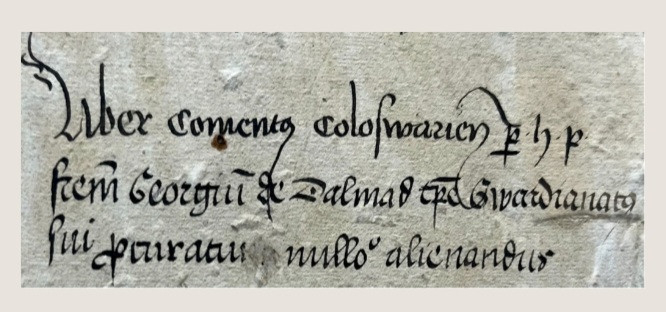 Liber Conventus Coloswarien̄ p̱ h p̱
frem̄ Georgiū de Dalmad tp̄e Gwardianatus
sui ꝓcuratu nullo alienandus